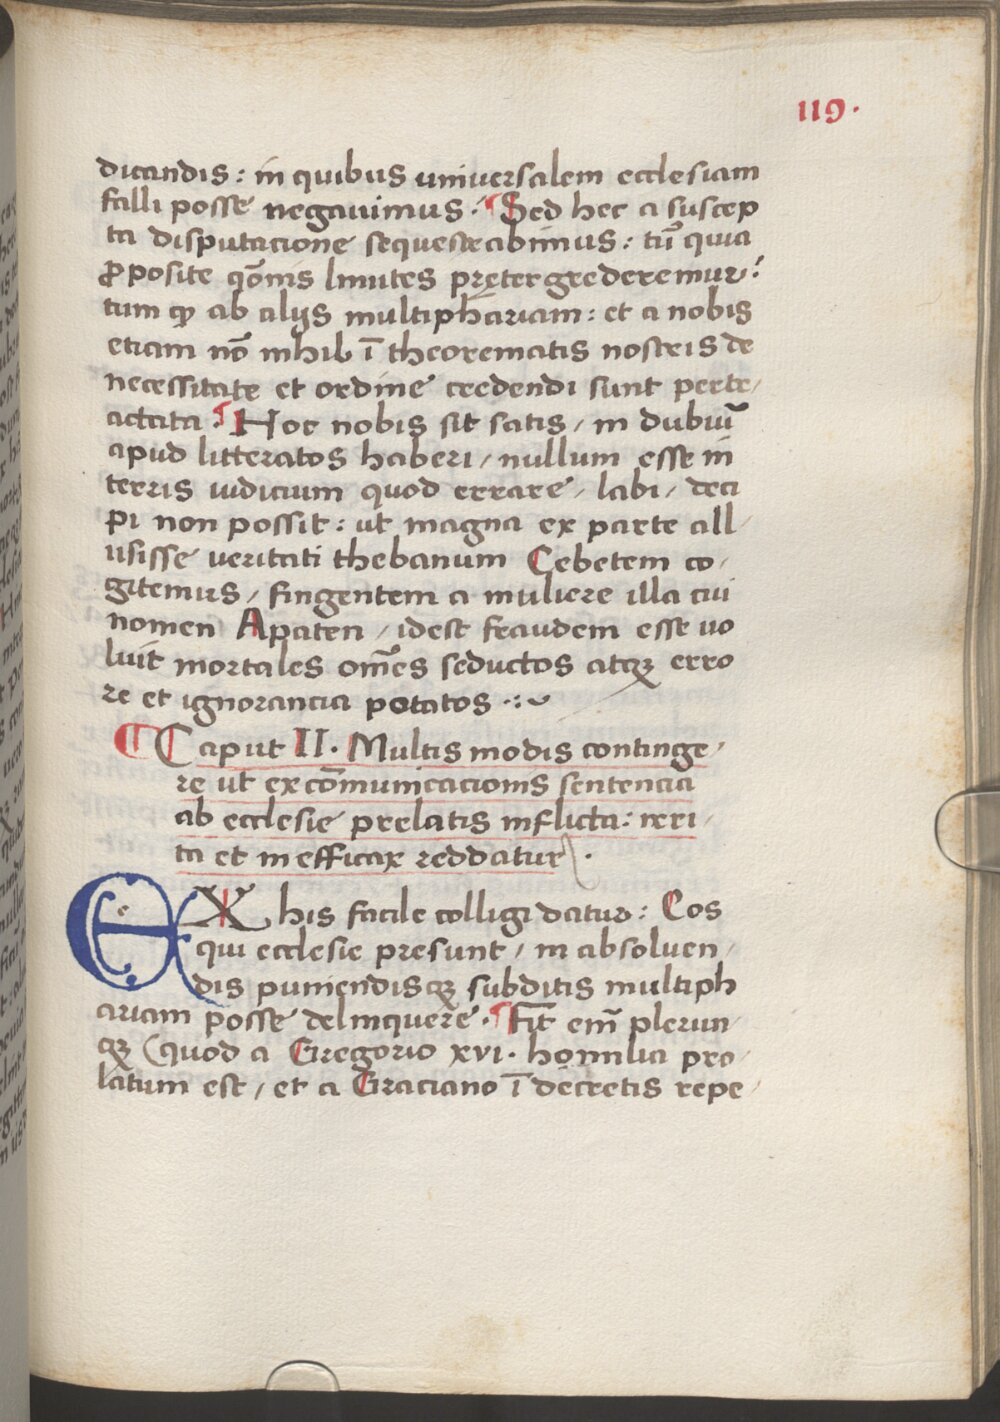 119.
dicandis: in quibus universalem ecclesiam
falli posse negauimus. Sed hec a suscep
ta disputacione sequestrabimus: tū quia
ꝓposite qōnis limites prętergrederemur:
tum ꝙ ab alijs multiphariam: et a nobis
etiam nō nihil ī theorematis nostris de
necessitate et ordine credendi sunt pertr/
actata. Hoc nobis sit satis, in dubiū
apud litteratos haberi, nullum esse in
terris iudicium quod errare, labi, deci
pi non possit: ut magna ex parte all/
usisse veritati thebanum Cebetem co/
gitemus, fingentem a muliere illa cui
nomen Apaten, idest fraudem esse uo
luit mortales om̄es seductos atqꝫ erro
re et ignorancia potatos.
Caput II. Multis modis continge/
re ut excōmunicacionis sentencia
ab ecclesie prelatis inflicta: irri/
ta et inefficax reddatur.
EX his facile colligi datur: Eos
qui ecclesie presunt, in absoluen/
dis puniendisqꝫ subditis multiph
ariam posse delinquere. Fit em̄ plerun/
qꝫ (quod a Gregorio xvi. homilia pro/
latum est, et a Graciano ī decretis repe/